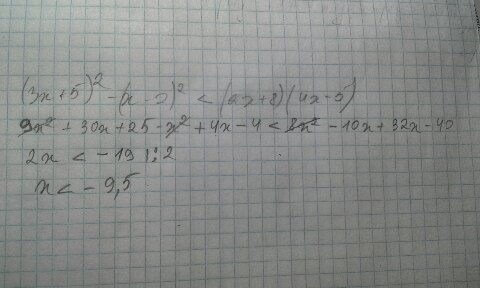 (3x+5)² -(x-2)² < (2x+8)(4x-5)
9x² + 30x + 25 - x² + 4x - 4 < 8x² - 10x + 32x - 40
2x < -19 |:2
x < -9,5